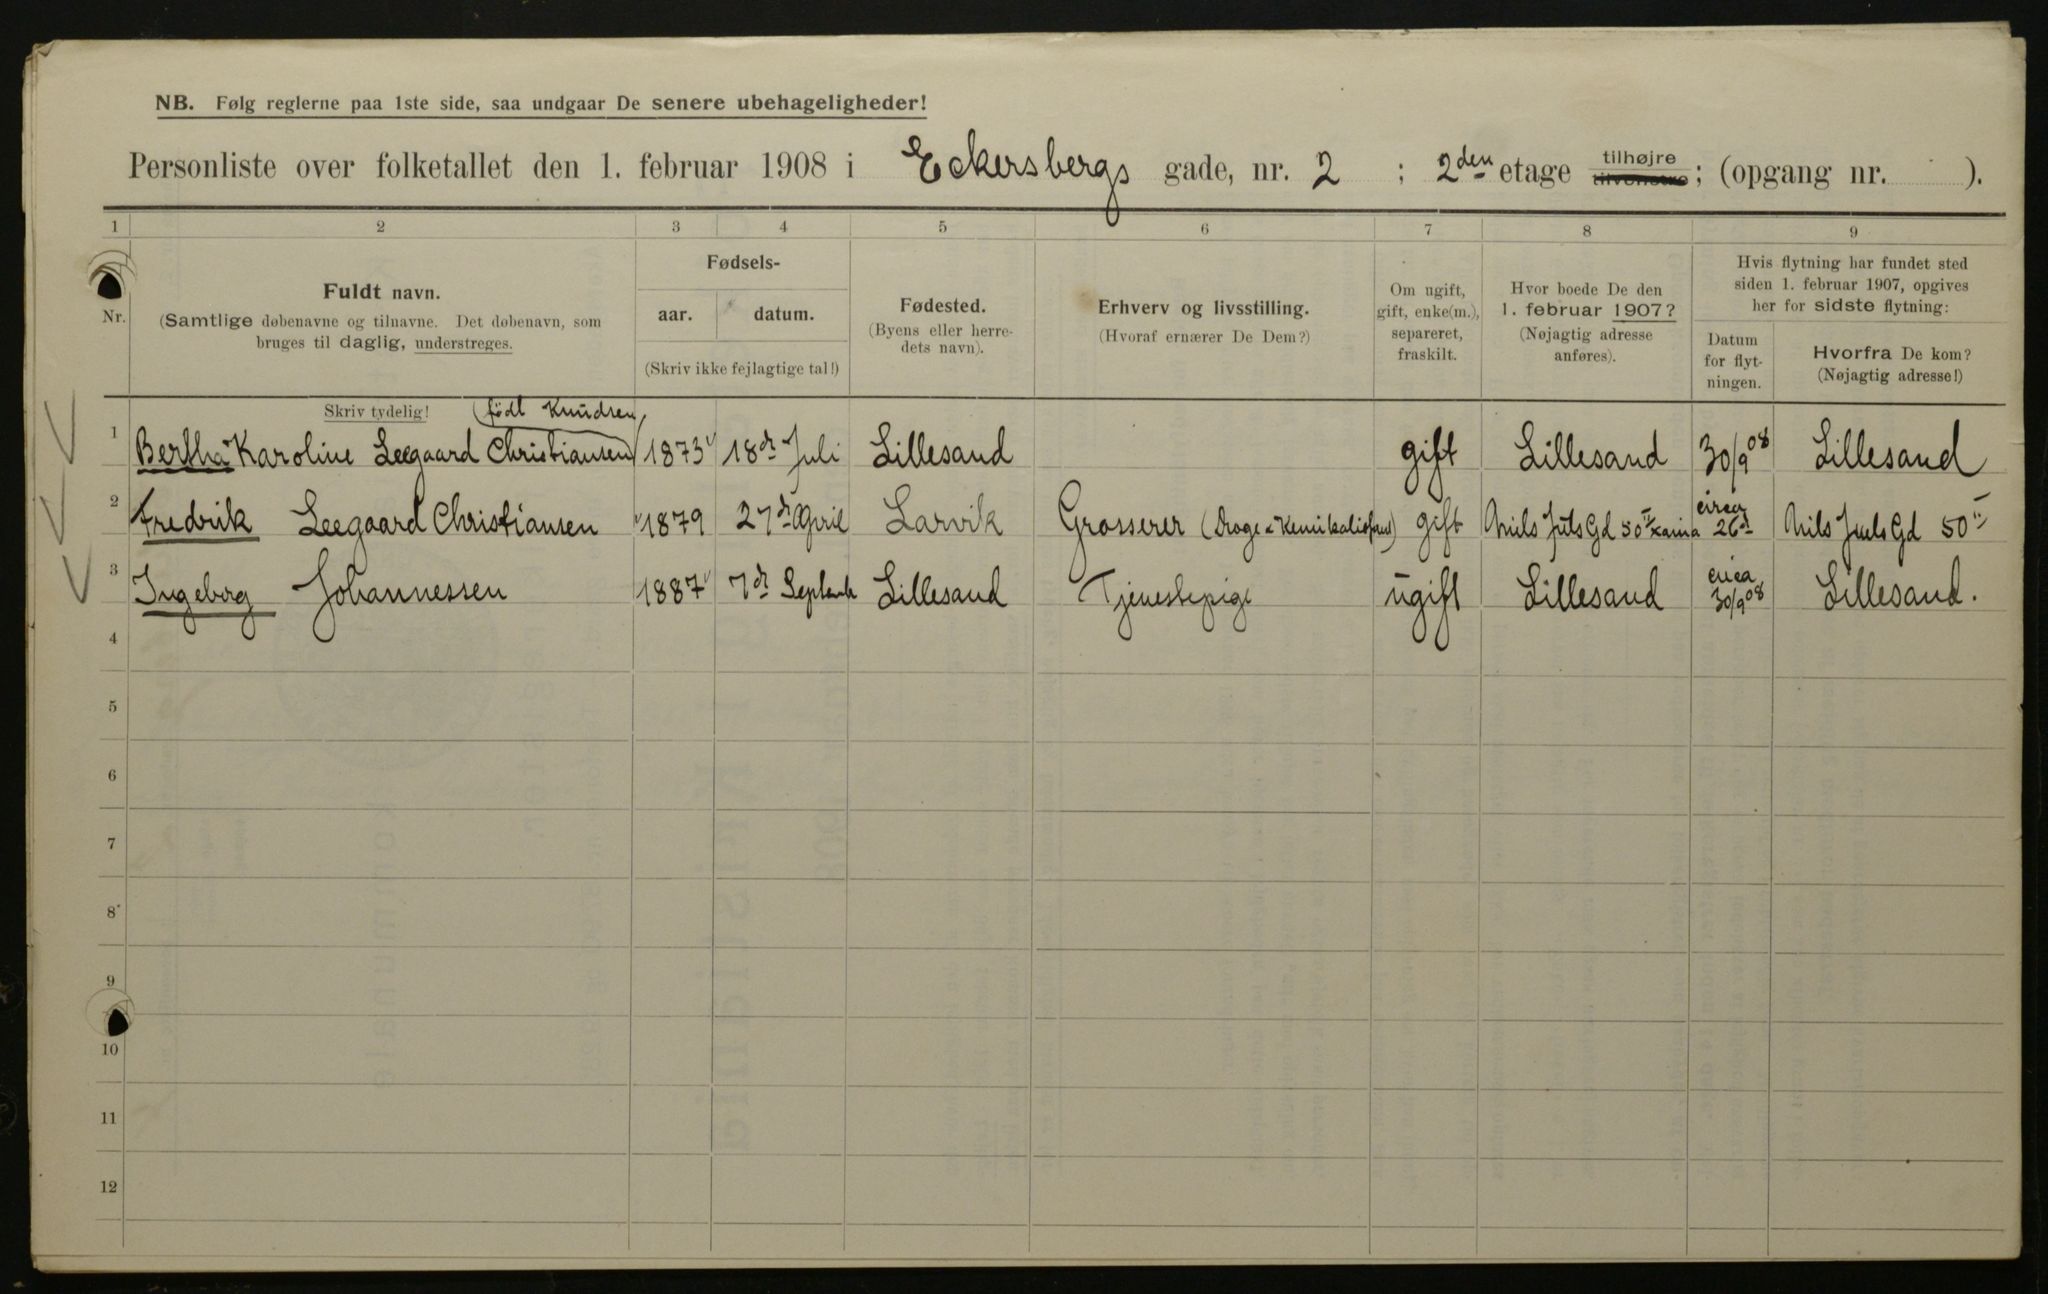 NB. Følg reglerne paa 1ste side, saa undgaar De senere ubehageligheder!
Personliste over folketallet den 1. februar 1908 i Eckersbergs gade, nr. 2 ; 2den etage tilhøjre tilvenstre; (opgang nr. ).
1 2 3 4 5 6 7 8 9
Nr.
Fuldt navn.
(Samtlige døbenavne og tilnavne. Det døbenavn, som
bruges til daglig, understreges.
Skriv tydelig!
Fødsels-
aar. datum.
(Skriv ikke fejlagtige tal!)
Fødested.
(Byens eller herre-
dets navn).
Erhverv og livsstilling.
(Hvoraf ernærer De Dem?)
Om ugift,
gift, enke(m.),
separeret,
fraskilt.
Hvor boede De den
1. februar 1907?
(Nøjagtig adresse
anføres).
Hvis flytning har fundet sted
siden 1. februar 1907, opgives
her for sidste flytning:
Datum
for flyt-
ningen.
Hvorfra De kom?
(Nøjagtig adresse!)
født Knudsen
1 Bertha Karoline Leegaard Christiansen 1873 18de Juli Lillesand gift Lillesand 30/9 08 Lillesand
2 Fredrik Leegaard Christiansen 1879 27de April Larvik Grosserer (Droge & Kemikalie) gift Niels Juls Gd 50 II Xania circa 26de Nils Juels Gd 50 II
3 Ingeborg Johannessen 1887 7de Septemb Lillesand Tjenestepige ugift Lillesand circa 30/9 08 Lillesand.
4
5
6
7
8
9
10
11
12